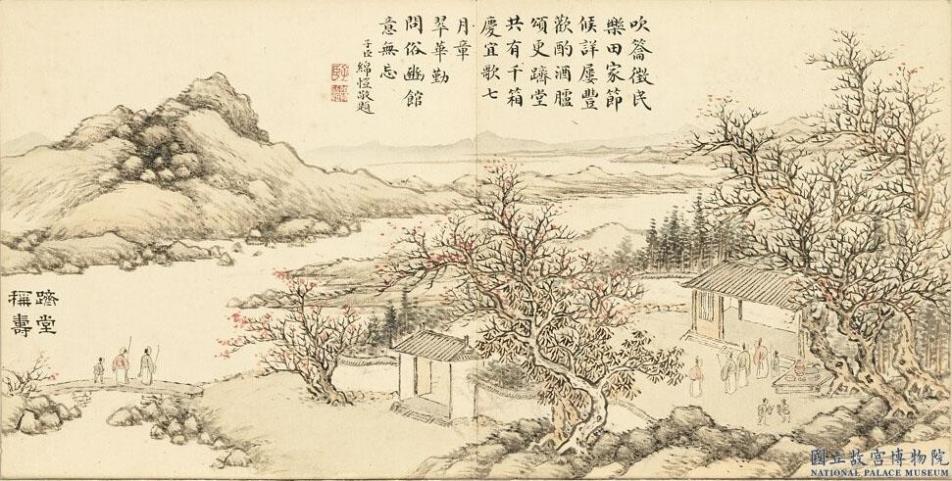 吹籥徵民
樂田家節
候詳屢豐
歡酌酒臚
頌更躋堂
共有千箱
慶宜歌七
月章
翠華勤
問俗豳館
意無忘
子臣綿愷敬題
躋堂
稱壽
國立故宮博物院
NATIONAL PALACE MUSEUM